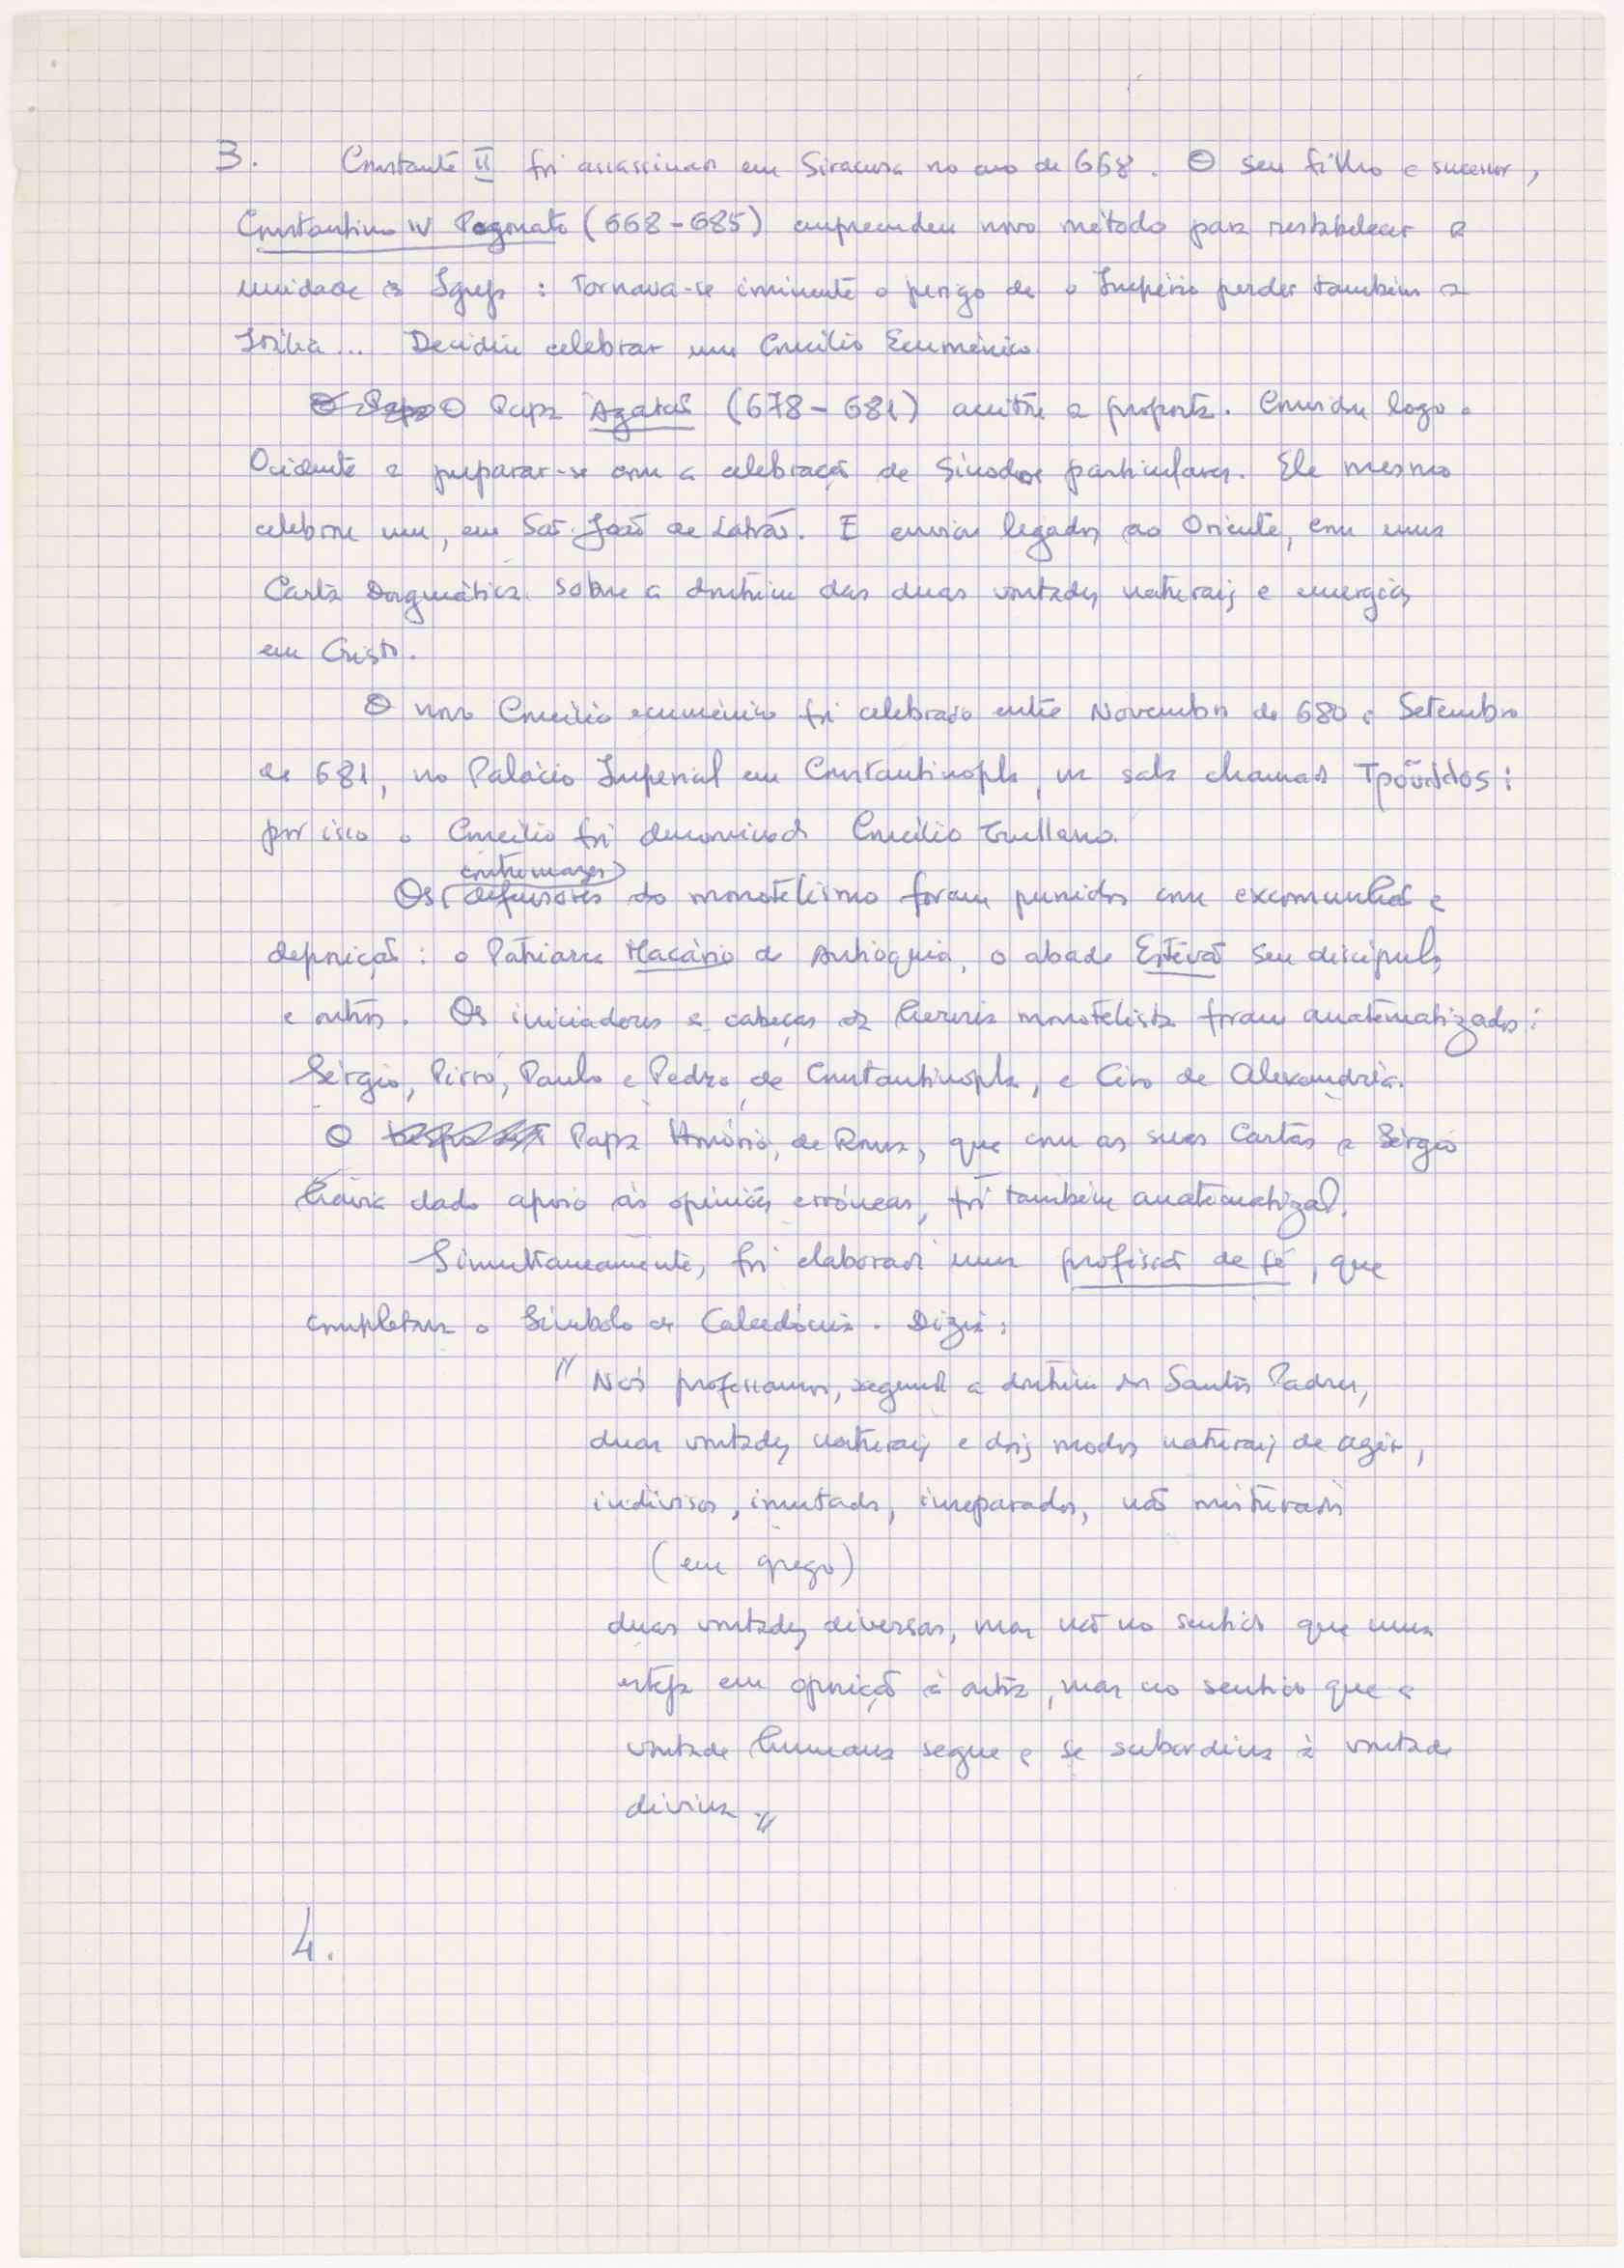 3. Constante II foi assassinado em Siracusa no ano de 668. O seu filho e sucessor,
Constantino IV Pogonato (668-685) empreendeu novo método para restabelecer a
unidade da Igreja: Tornava-se iminente o perigo de o Império perder também a
Itália... Decidiu celebrar um Concílio Ecuménico.
O Papa O Papa Agatão (678-681) aceitou a proposta. Convidou logo o
Ocidente a preparar-se com a celebração de Sínodos particulares. Ele mesmo
celebrou um, em São João de Latrão. E enviou legados ao Oriente, com uma
Carta Dogmática sobre a doutrina das duas vontades naturais e energias
em Cristo.
O novo Concílio ecuménico foi celebrado entre Novembro de 680 e Setembro
de 681, no Palácio Imperial em Constantinopla, na sala chamada
por isso o Concílio foi denominado Concílio Trullano.
contumazes
Os defensores do monotelismo foram punidos com excomunhão e
deposição: o Patriarca Macário de Antioquia, o abade Estêvão seu discípulo,
e outros. Os iniciadores e cabeças da heresia monotelista foram anatematizados:
Sérgio, Pirro, Paulo e Pedro, de Constantinopla, e Ciro de Alexandria.
O Papa Honório, de Roma, que com as suas Cartas a Sérgio
havia dado apoio às opiniões erróneas, foi também anatematizado.
Simultaneamente, foi elaborada uma profissão de fé, que
completava o Símbolo de Calcedónia. Dizia:
"Nós professamos, segundo a doutrina dos Santos Padres,
duas vontades naturais e dois modos naturais de agir,
indivisos, imutados, inseparados, não misturados
(em grego)
duas vontades diversas, mas não no sentido que uma
esteja em oposição à outra, mas no sentido que a
vontade humana segue e se subordina à vontade
divina."
4.